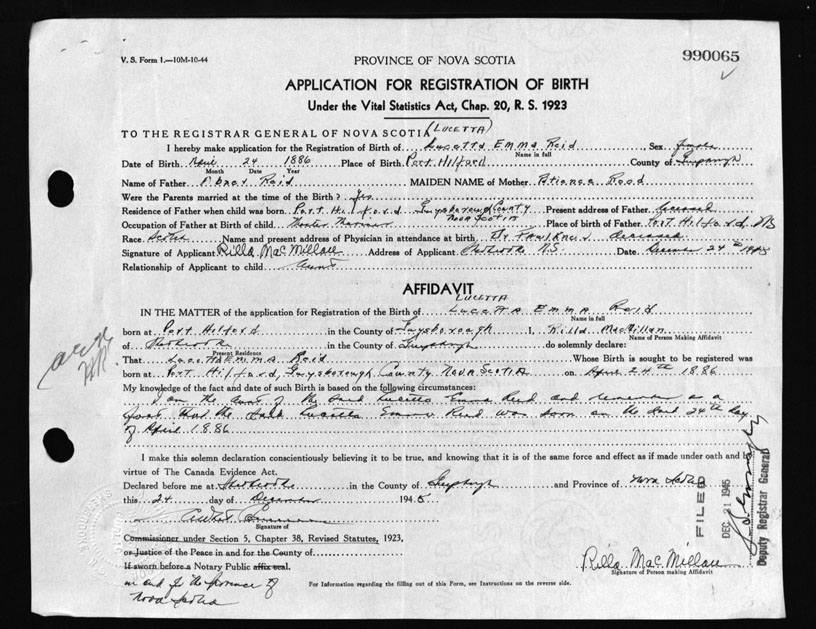 V. S. Form 1.—10M-10-44
PROVINCE OF NOVA SCOTIA
990065
APPLICATION FOR REGISTRATION OF BIRTH
Under the Vital Statistics Act, Chap. 20, R. S. 1923
(LUCETTA)
TO THE REGISTRAR GENERAL OF NOVA SCOTIA
I hereby make application for the Registration of Birth of Lucetta Emma Reid Sex female
Name in full
Date of Birth April 24 1886 Place of Birth Port Hilford County of
Month Date Year
Name of Father Reid MAIDEN NAME of Mother
Were the Parents married at the time of the Birth? Yes
Residence of Father when child was born Port Hilford Guysborough County Nova Scotia Present address of Father deceased
Occupation of Father at Birth of child Master Mariner Place of birth of Father Port Hilford NS
Race Name and present address of Physician in attendance at birth Dr Faulkner deceased
Signature of Applicant Rilla MacMillan Address of Applicant Sherbrooke N.S. Date December 24th 1945
Relationship of Applicant to child Aunt
AFFIDAVIT
LUCETTA
IN THE MATTER of the application for Registration of the Birth of Lucetta Emma Reid
Name in full
born at Port Hilford in the County of Guysborough I, Rilla MacMillan
Name of Person Making Affidavit
of Sherbrooke in the County of do solemnly declare:
Present Residence
That Lucetta Emma Reid Whose Birth is sought to be registered was
born at Port Hilford, Guysborough County Nova Scotia on April 24th 1886
My knowledge of the fact and date of such Birth is based on the following circumstances:
I am the aunt of the said Lucetta Emma Reid and remember as a
fact that the said Lucetta Emma Reid was born on the said 24th day
of April 1886
I make this solemn declaration conscientiously believing it to be true, and knowing that it is of the same force and effect as if made under oath and by
virtue of The Canada Evidence Act.
Declared before me at Sherbrooke in the County of and Province of Nova Scotia
this 24 day of December 1945
Signature of
Commissioner under Section 5, Chapter 38, Revised Statutes, 1923,
or Justice of the Peace in and for the County of
If sworn before a Notary Public affix seal.
in and for the province of
Nova Scotia
For Information regarding the filling out of this Form, see Instructions on the reverse side.
Rilla MacMillan
Signature of Person making Affidavit
FILED
DEC 31 1945
Deputy Registrar General